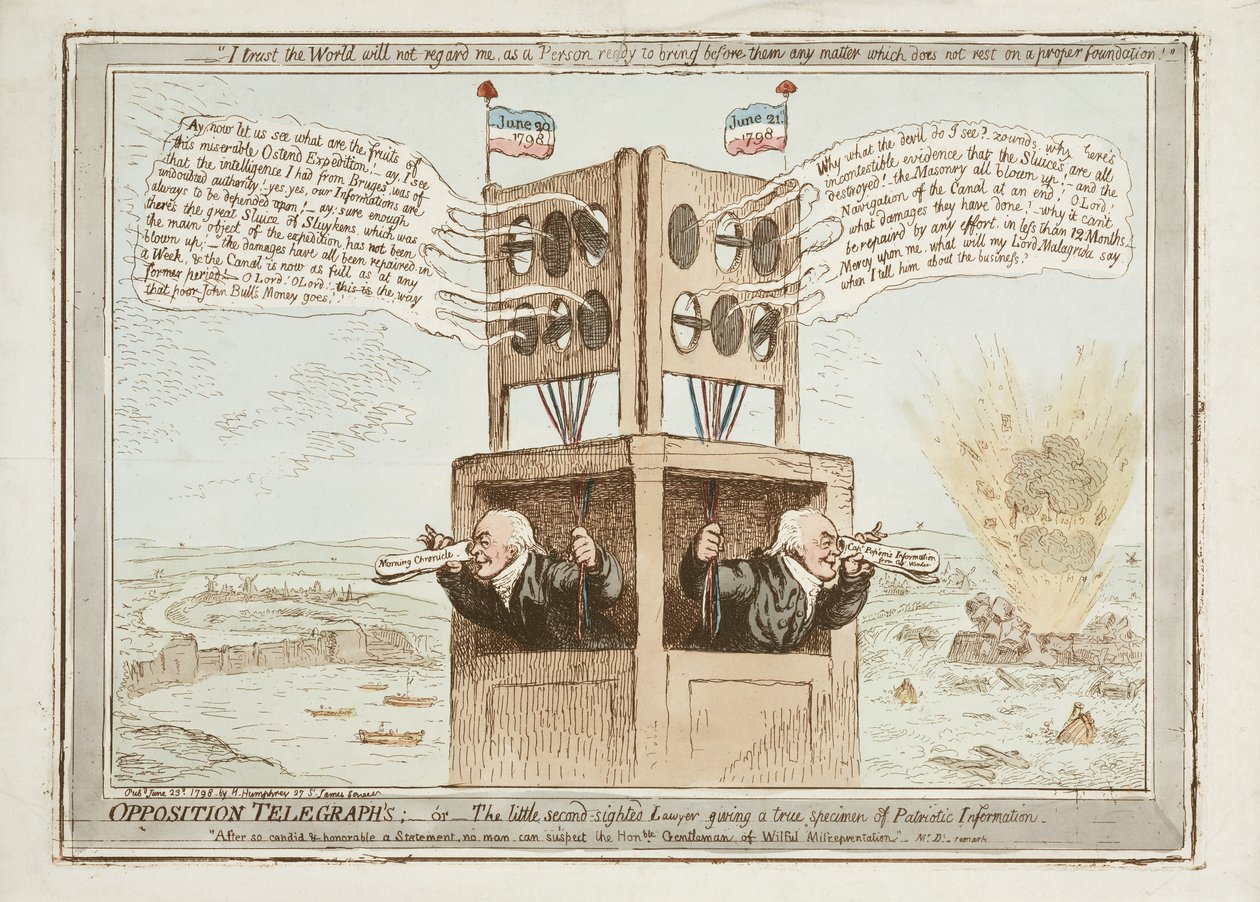 "I trust the World will not regard me, as a Person ready to bring before them any matter which does not rest on a proper foundation!"
June 20
1798
June 21.
1798
Ay, now let us see what are the fruits of
this miserable Ostend Expedition!— ay, I see
that the intelligence I had from Bruges, was of
undoubted authority!— yes, yes, our Informations are
always to be depended upon!— ay, sure enough
there's the great Sluice of Sluykens, which was
the main object of the expedition, has not been
blown up;— the damages have all been repaired in
a Week, & the Canal is now as full as at any
former period;— O Lord! O Lord! this is the way
that poor John Bull's Money goes!
Why what the devil do I see?. zounds, why here's
incontestible evidence that the Sluices are all
destroyed!— the Masonry all blown up;— and the
Navigation of the Canal at an end; O Lord,
what damages they have done!— why it can't
be repaird by any effort in less than 12 Months
Mercy upon me, what will my Lord Malagrida say
when I tell him about the business?
Morning Chronicle
Capn Popham's Information
from Capn Winter
Pubd June 23d 1798. by H. Humphrey 27 St James Street
OPPOSITION TELEGRAPH'S;— or— The little second-sighted Lawyer giving a true specimen of Patriotic Information—
"After so candid & honorable a Statement, no man can suspect the Honble Gentleman, of Wilful Misrepresentation"— Mr D's remark